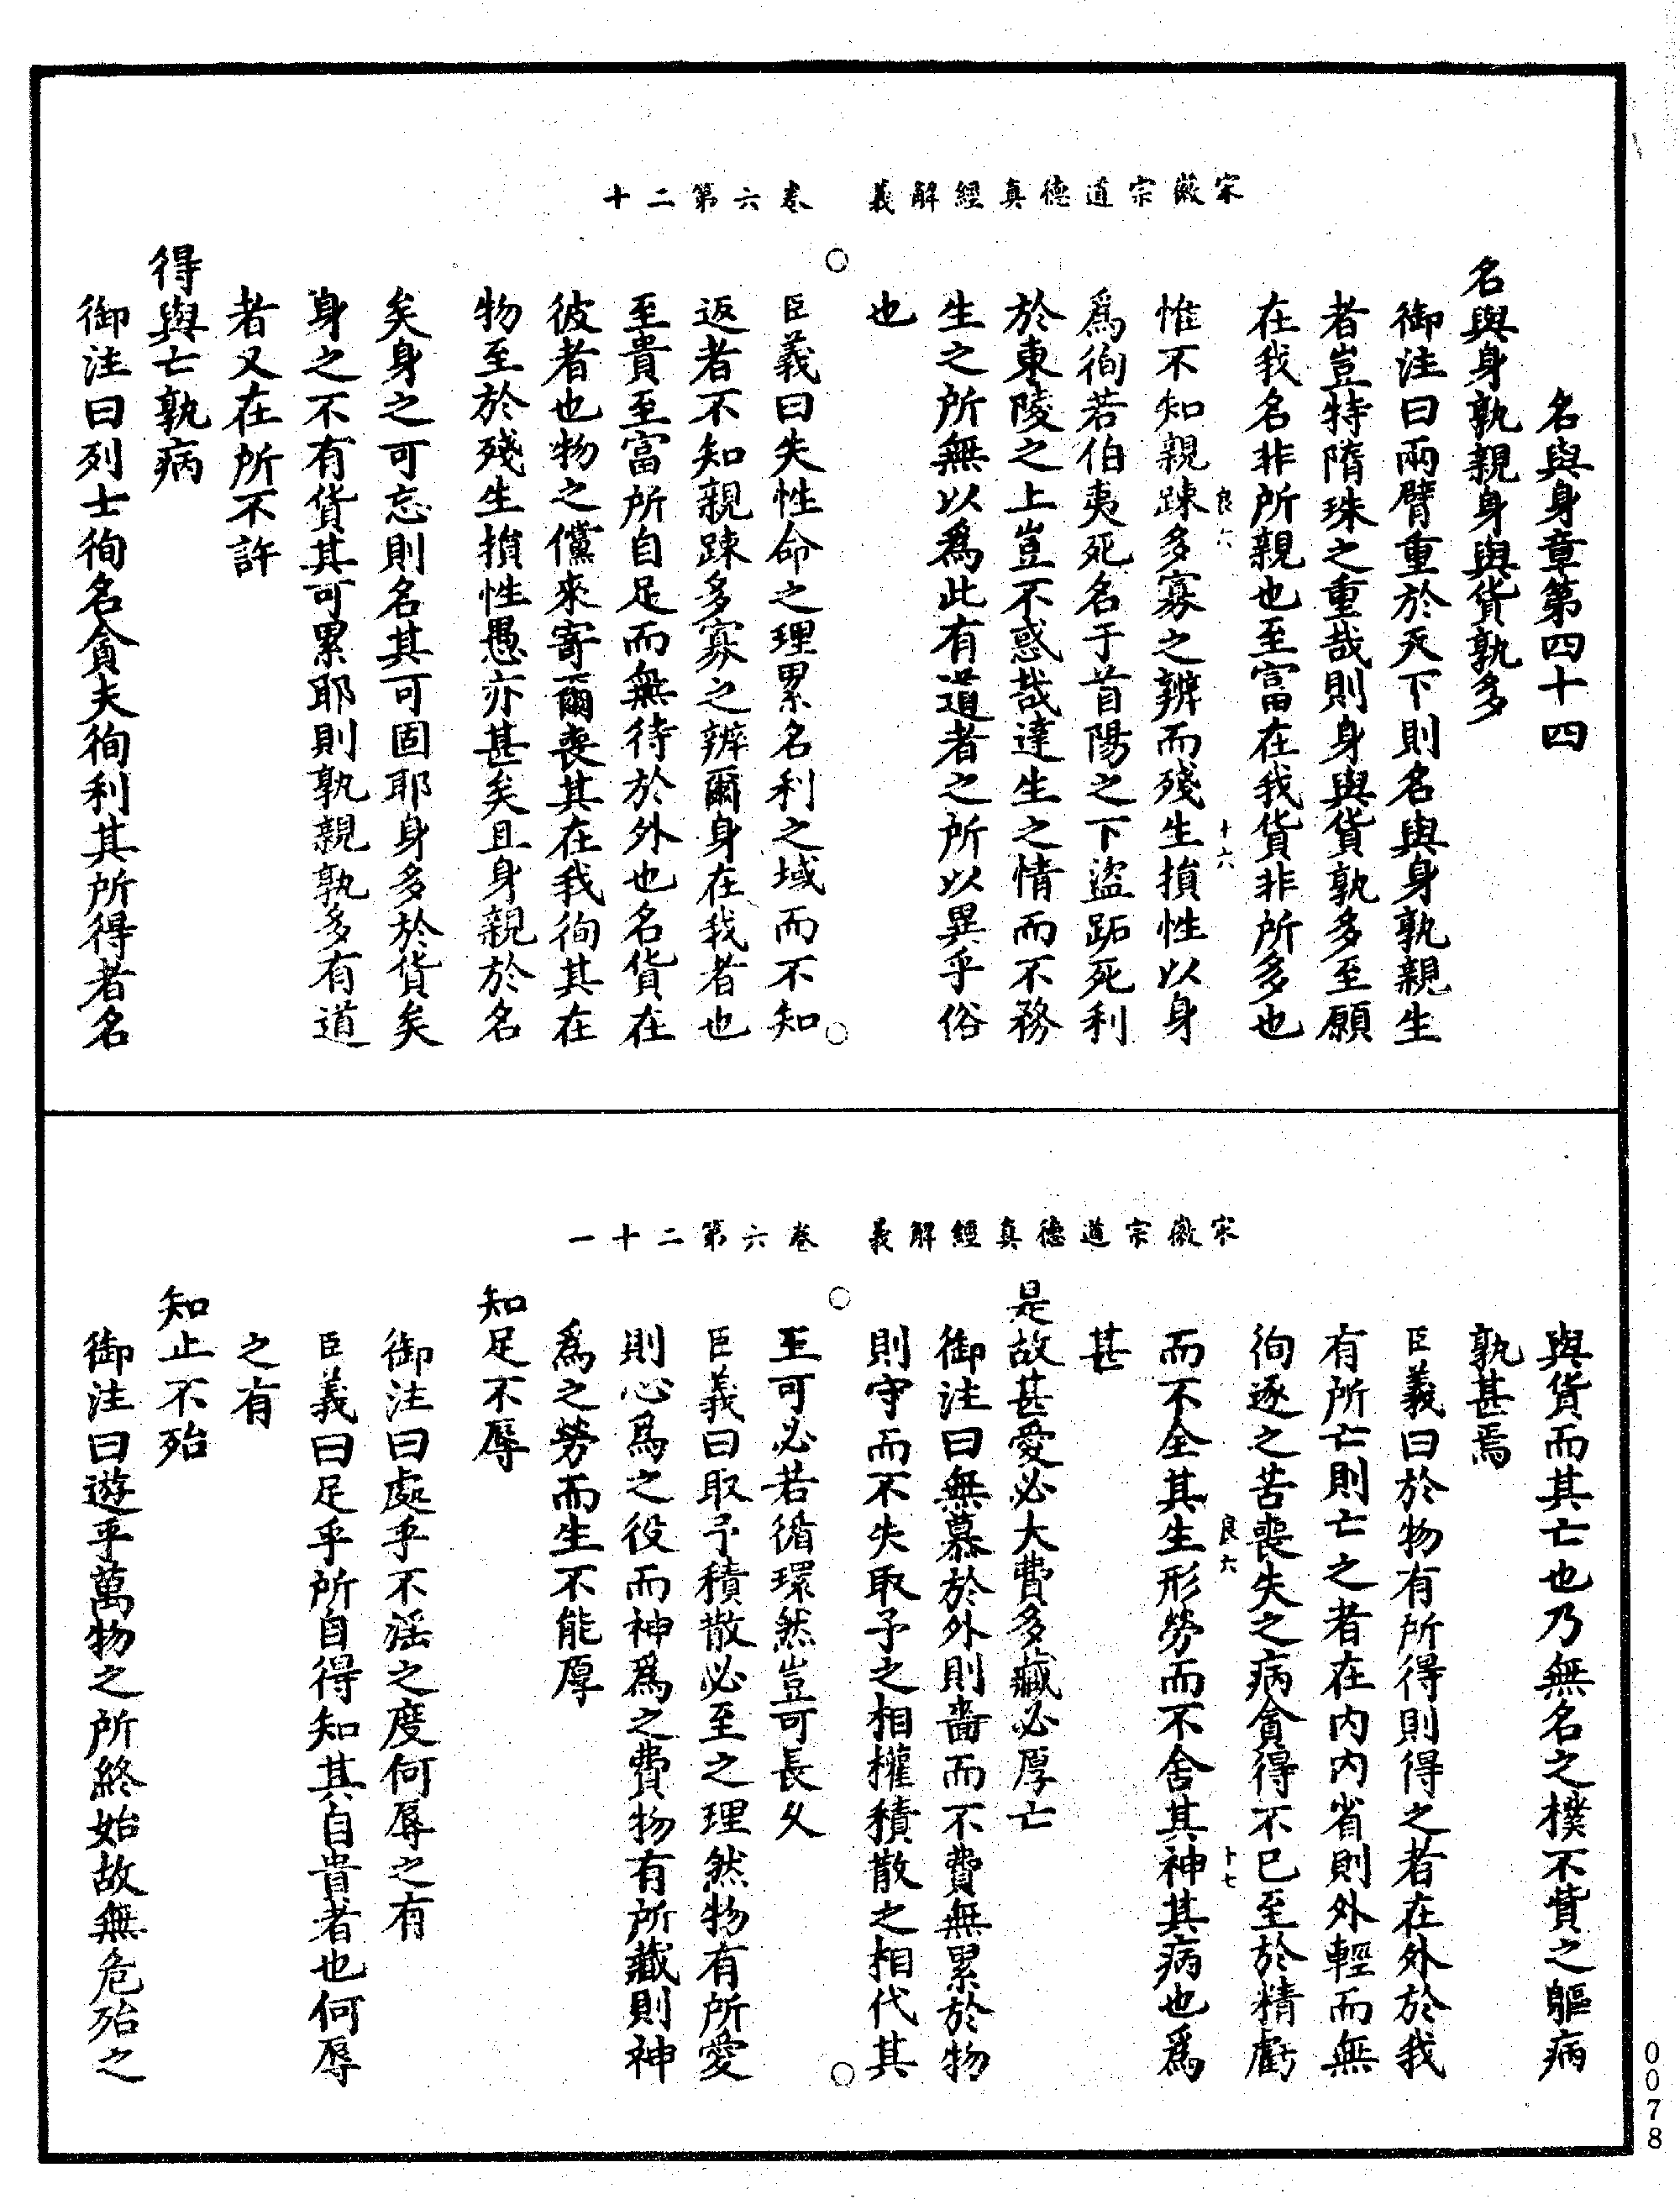 宋徽宗道德真經解義　卷六第二十
名與身章第四十四
名與身孰親身與貨孰多
御注曰兩臂重於天下則名與身孰親生
者豈特隋珠之重哉則身與貨孰多至願
在我名非所親也至富在我貨非所多也
良六　十六
惟不知親踈多寡之辨而殘生損性以身
爲徇若伯夷死名于首陽之下盜跖死利
於東陵之上豈不惑哉達生之情而不務
生之所無以爲此有道者之所以異乎俗
也
臣義曰失性命之理累名利之域而不知
返者不知親踈多寡之辨爾身在我者也
至貴至富所自足而無待於外也名貨在
彼者也物之儻來寄爾喪其在我徇其在
物至於殘生損性愚亦甚矣且身親於名
矣身之可忘則名其可固耶身多於貨矣
身之不有貨其可累耶則孰親孰多有道
者又在所不許
得與亡孰病
御注曰列士徇名貪夫徇利其所得者名
宋徽宗道德真經解義　卷六第二十一
與貨而其亡也乃無名之樸不貲之軀病
孰甚焉
臣義曰於物有所得則得之者在外於我
有所亡則亡之者在内内省則外輕而無
徇逐之苦喪失之病貪得不已至於精虧
良六　十七
而不全其生形勞而不舍其神其病也爲
甚
是故甚愛必大費多藏必厚亡
御注曰無慕於外則嗇而不費無累於物
則守而不失取予之相權積散之相代其
至可必若循環然豈可長久
臣義曰取予積散必至之理然物有所愛
則心爲之役而神爲之費物有所藏則神
爲之勞而生不能厚
知足不辱
御注曰處乎不淫之度何辱之有
臣義曰足乎所自得知其自貴者也何辱
之有
知止不殆
御注曰遊乎萬物之所終始故無危殆之
0078